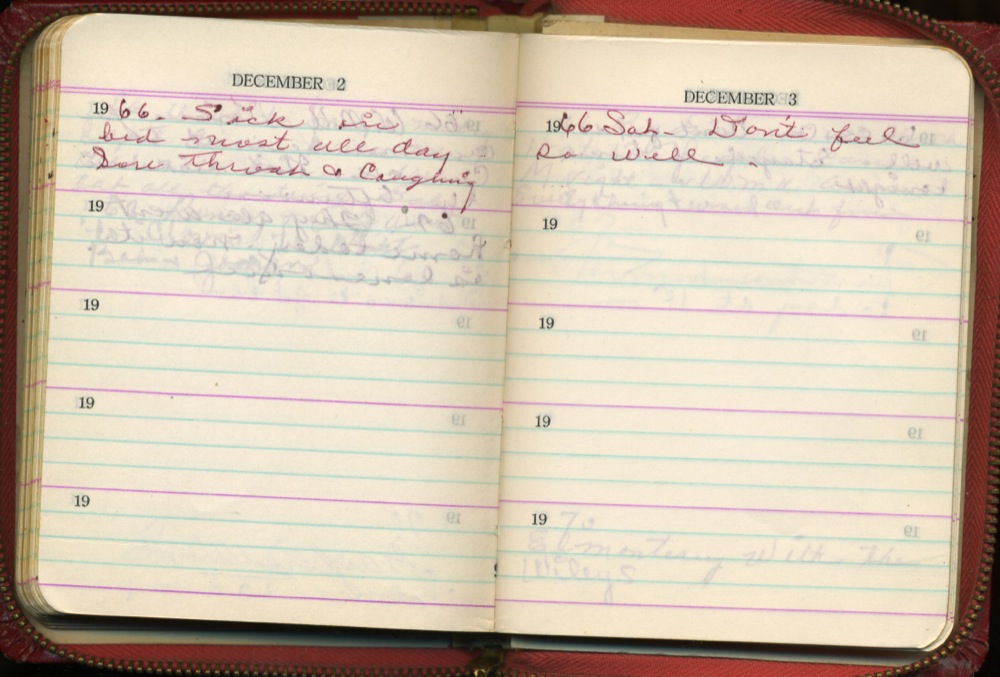 DECEMBER 2
1966. Sick in
bed most all day
Sore throat & Coughing
19
19
19
19
DECEMBER 3
1966 Sat- Don't feel
so well.
19
19
19
1970
With The
Wileys